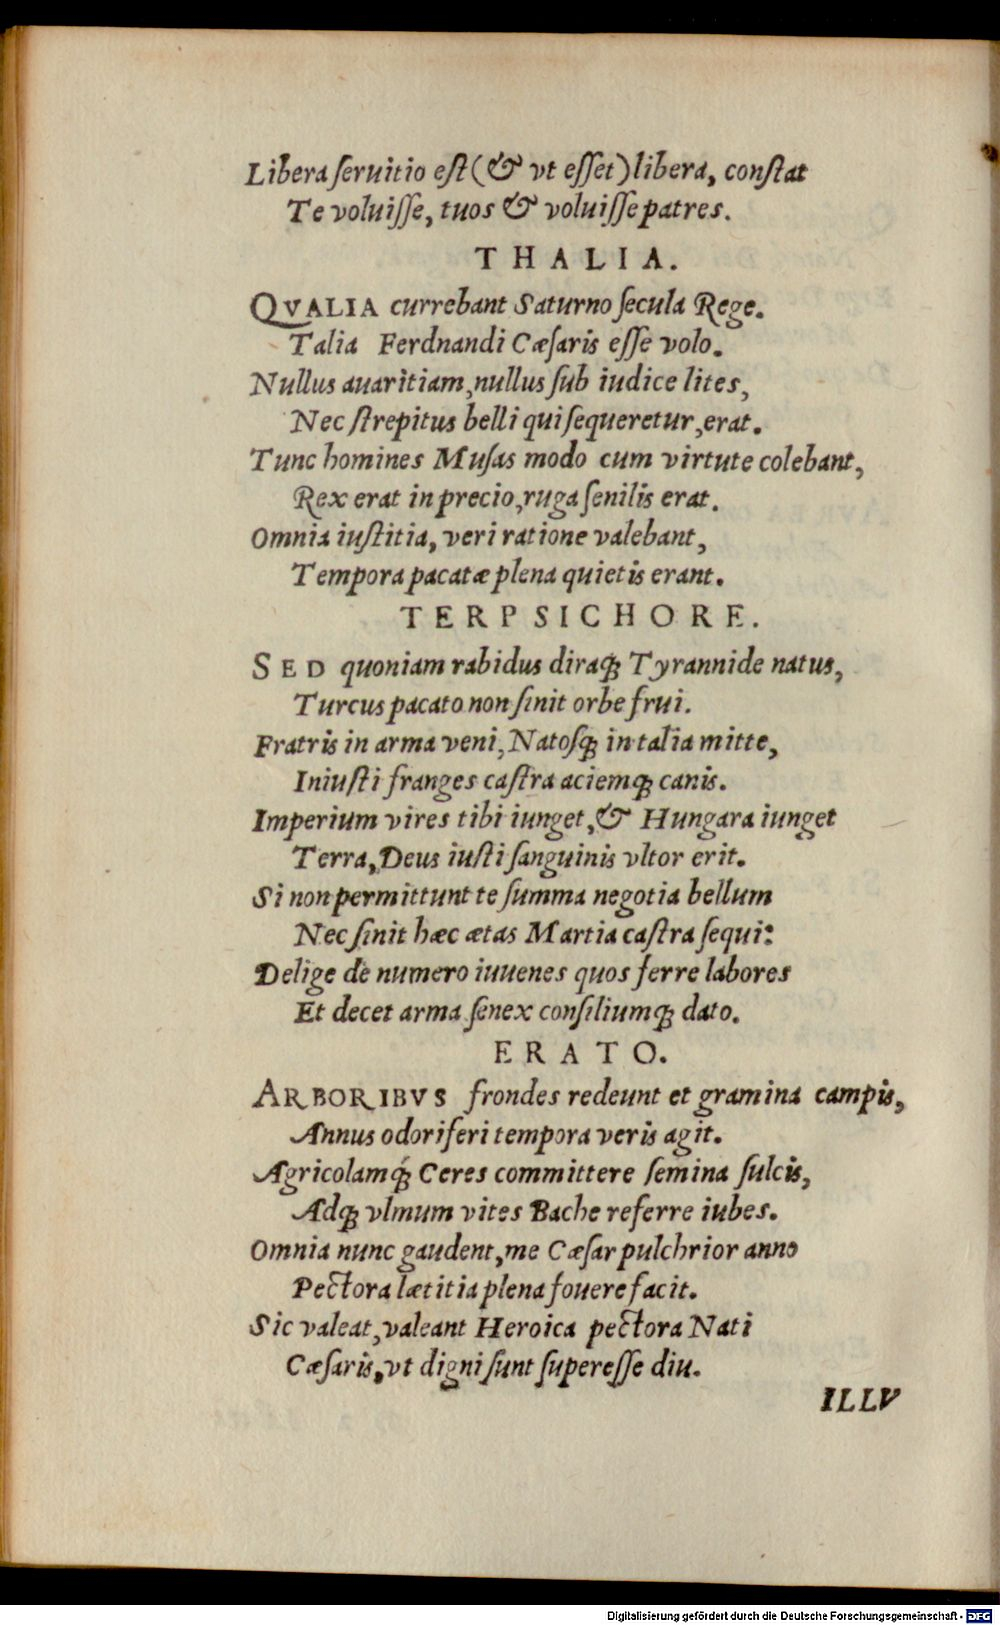 Libera ſeruitio eſt (& vt eſſet) libera, conſtat
Te voluiſſe, tuos & voluiſſe patres.
THALIA.
QVALIA currebant Saturno ſecula Rege.
Talia Ferdnandi Cæſaris eſſe volo.
Nullus auaritiam, nullus ſub iudice lites,
Nec ſtrepitus belli qui ſequeretur, erat.
Tunc homines Muſas modo cum virtute colebant,
Rex erat in precio, ruga ſenilis erat.
Omnia iuſtitia, veri ratione valebant,
Tempora pacatæ plena quietis erant.
TERPSICHORE.
SED quoniam rabidus diraq; Tyrannide natus,
Turcus pacato non ſinit orbe frui.
Fratris in arma veni, Natoſq; in talia mitte,
Iniuſti franges caſtra aciemq; canis.
Imperium vires tibi iunget, & Hungara iunget
Terra, Deus iuſti ſanguinis vltor erit.
Si non permittunt te ſumma negotia bellum
Nec ſinit hæc ætas Martia caſtra ſequi:
Delige de numero iuuenes quos ferre labores
Et decet arma ſenex conſiliumq; dato.
ERATO.
ARBORIBVS frondes redeunt et gramina campis,
Annus odoriferi tempora veris agit.
Agricolamq́; Ceres committere ſemina ſulcis,
Adq; vlmum vites Bache referre iubes.
Omnia nunc gaudent, me Cæſar pulchrior anno
Pectora lætitia plena fouere facit.
Sic valeat, valeant Heroica pectora Nati
Cæſaris, vt digni ſunt ſupereſſe diu.
ILLV
Digitalisierung gefördert durch die Deutsche Forschungsgemeinschaft - DFG